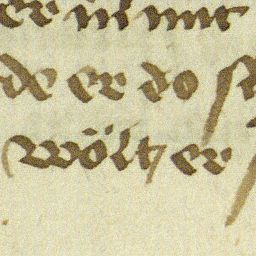 er in mit
de er do
wölt er